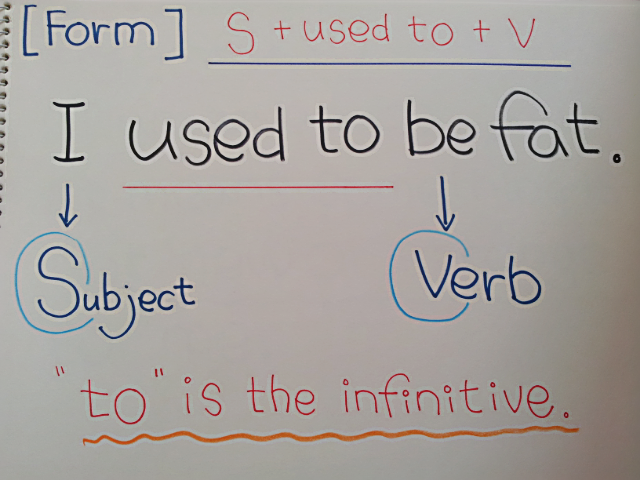 [Form] S + used to + V
I used to be fat.
Subject Verb
"to" is the infinitive.